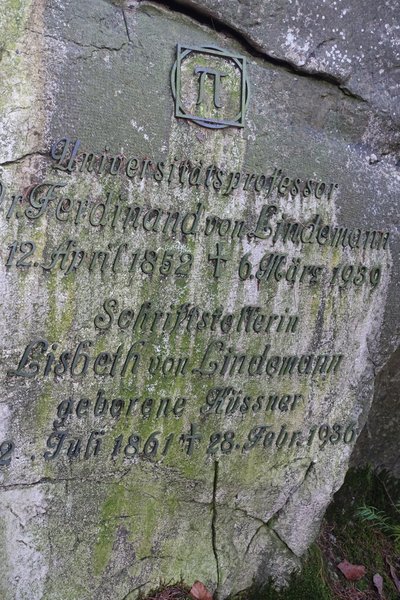 π
Universitätsprofessor
Dr. Ferdinand von Lindemann
12. April 1852 † 6. März 1939
Schriftstellerin
Lisbeth von Lindemann
geborene Küssner
2. Juli 1861 † 28. Febr. 1936